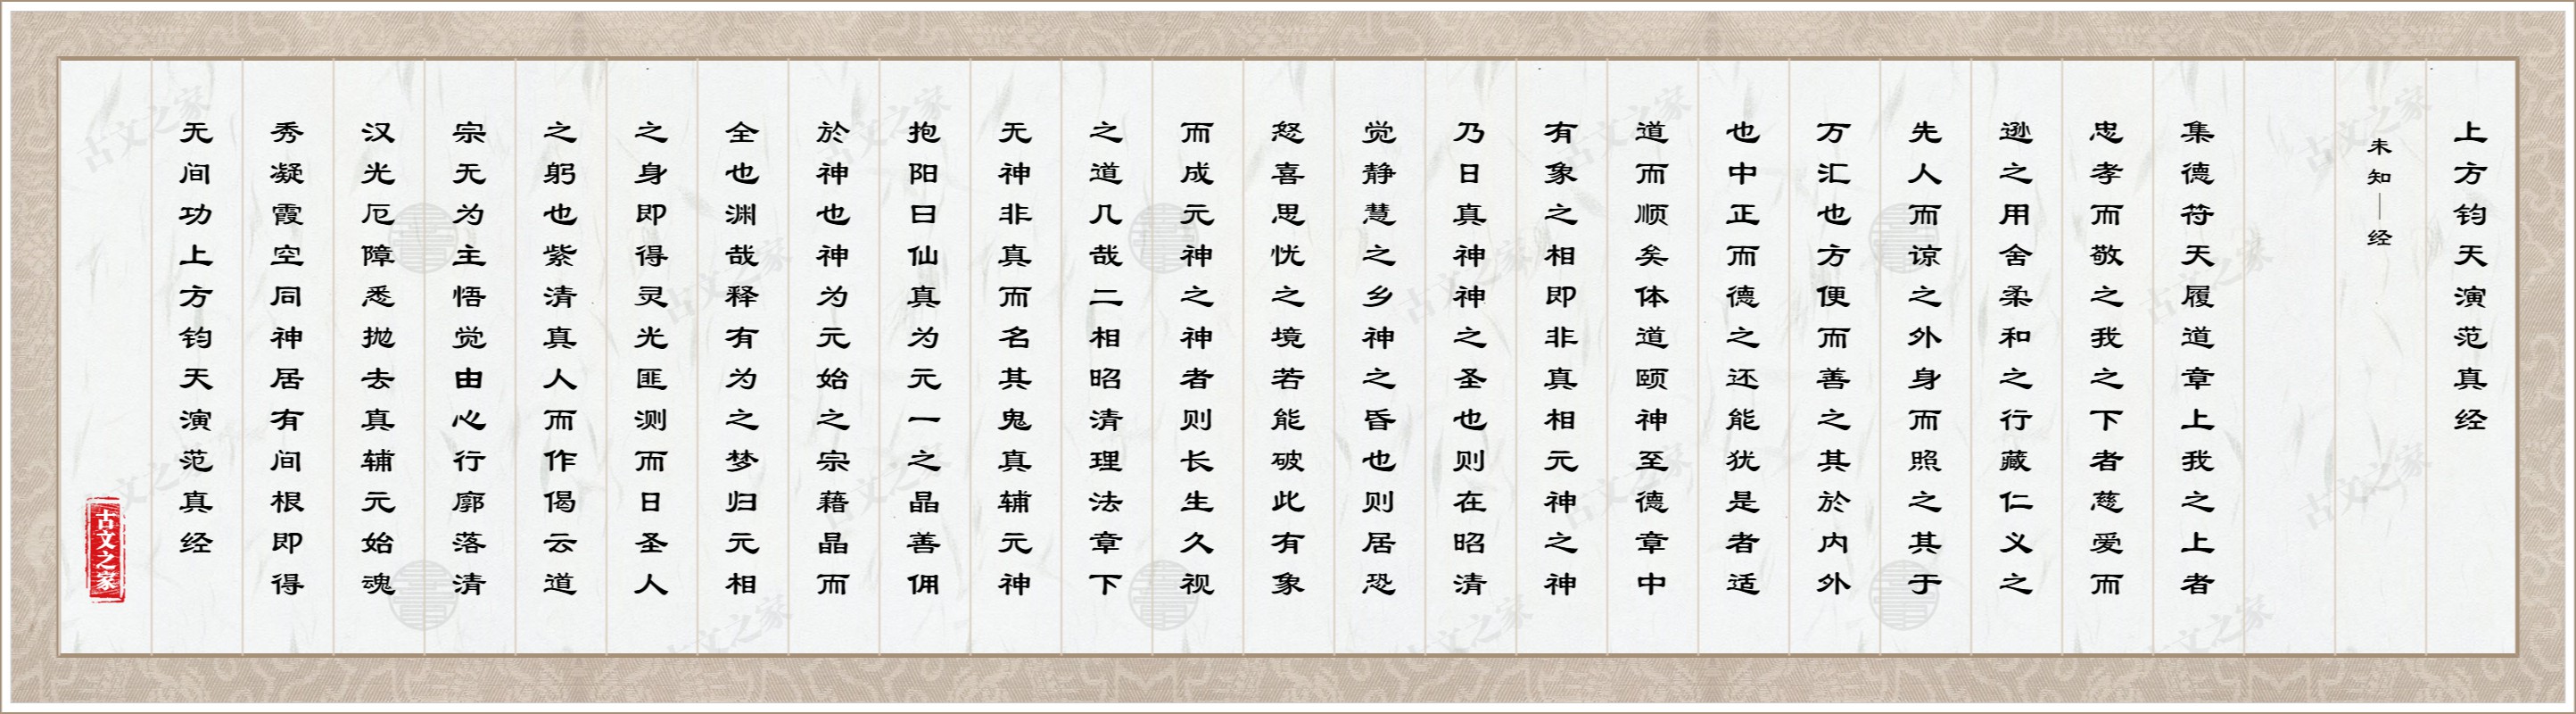 上方钧天演范真经
未知—经
集德符天履道章上我之上者
忠孝而敬之我之下者慈爱而
逊之用舍柔和之行藏仁义之
先人而谅之外身而照之其于
万汇也方便而善之其於内外
也中正而德之还能犹是者适
道而顺矣体道颐神至德章中
有象之相即非真相元神之神
乃日真神神之圣也则在昭清
觉静慧之乡神之昏也则居恐
怒喜思忧之境若能破此有象
而成元神之神者则长生久视
之道几哉二相昭清理法章下
无神非真而名其鬼真辅元神
抱阳曰仙真为元一之晶善佣
於神也神为元始之宗藉晶而
全也渊哉释有为之梦归元相
之身即得灵光匪测而日圣人
之躬也紫清真人而作偈云道
宗无为主悟觉由心行廓落清
汉光厄障悉抛去真辅元始魂
秀凝霞空同神居有间根即得
无间功上方钧天演范真经
古文之家